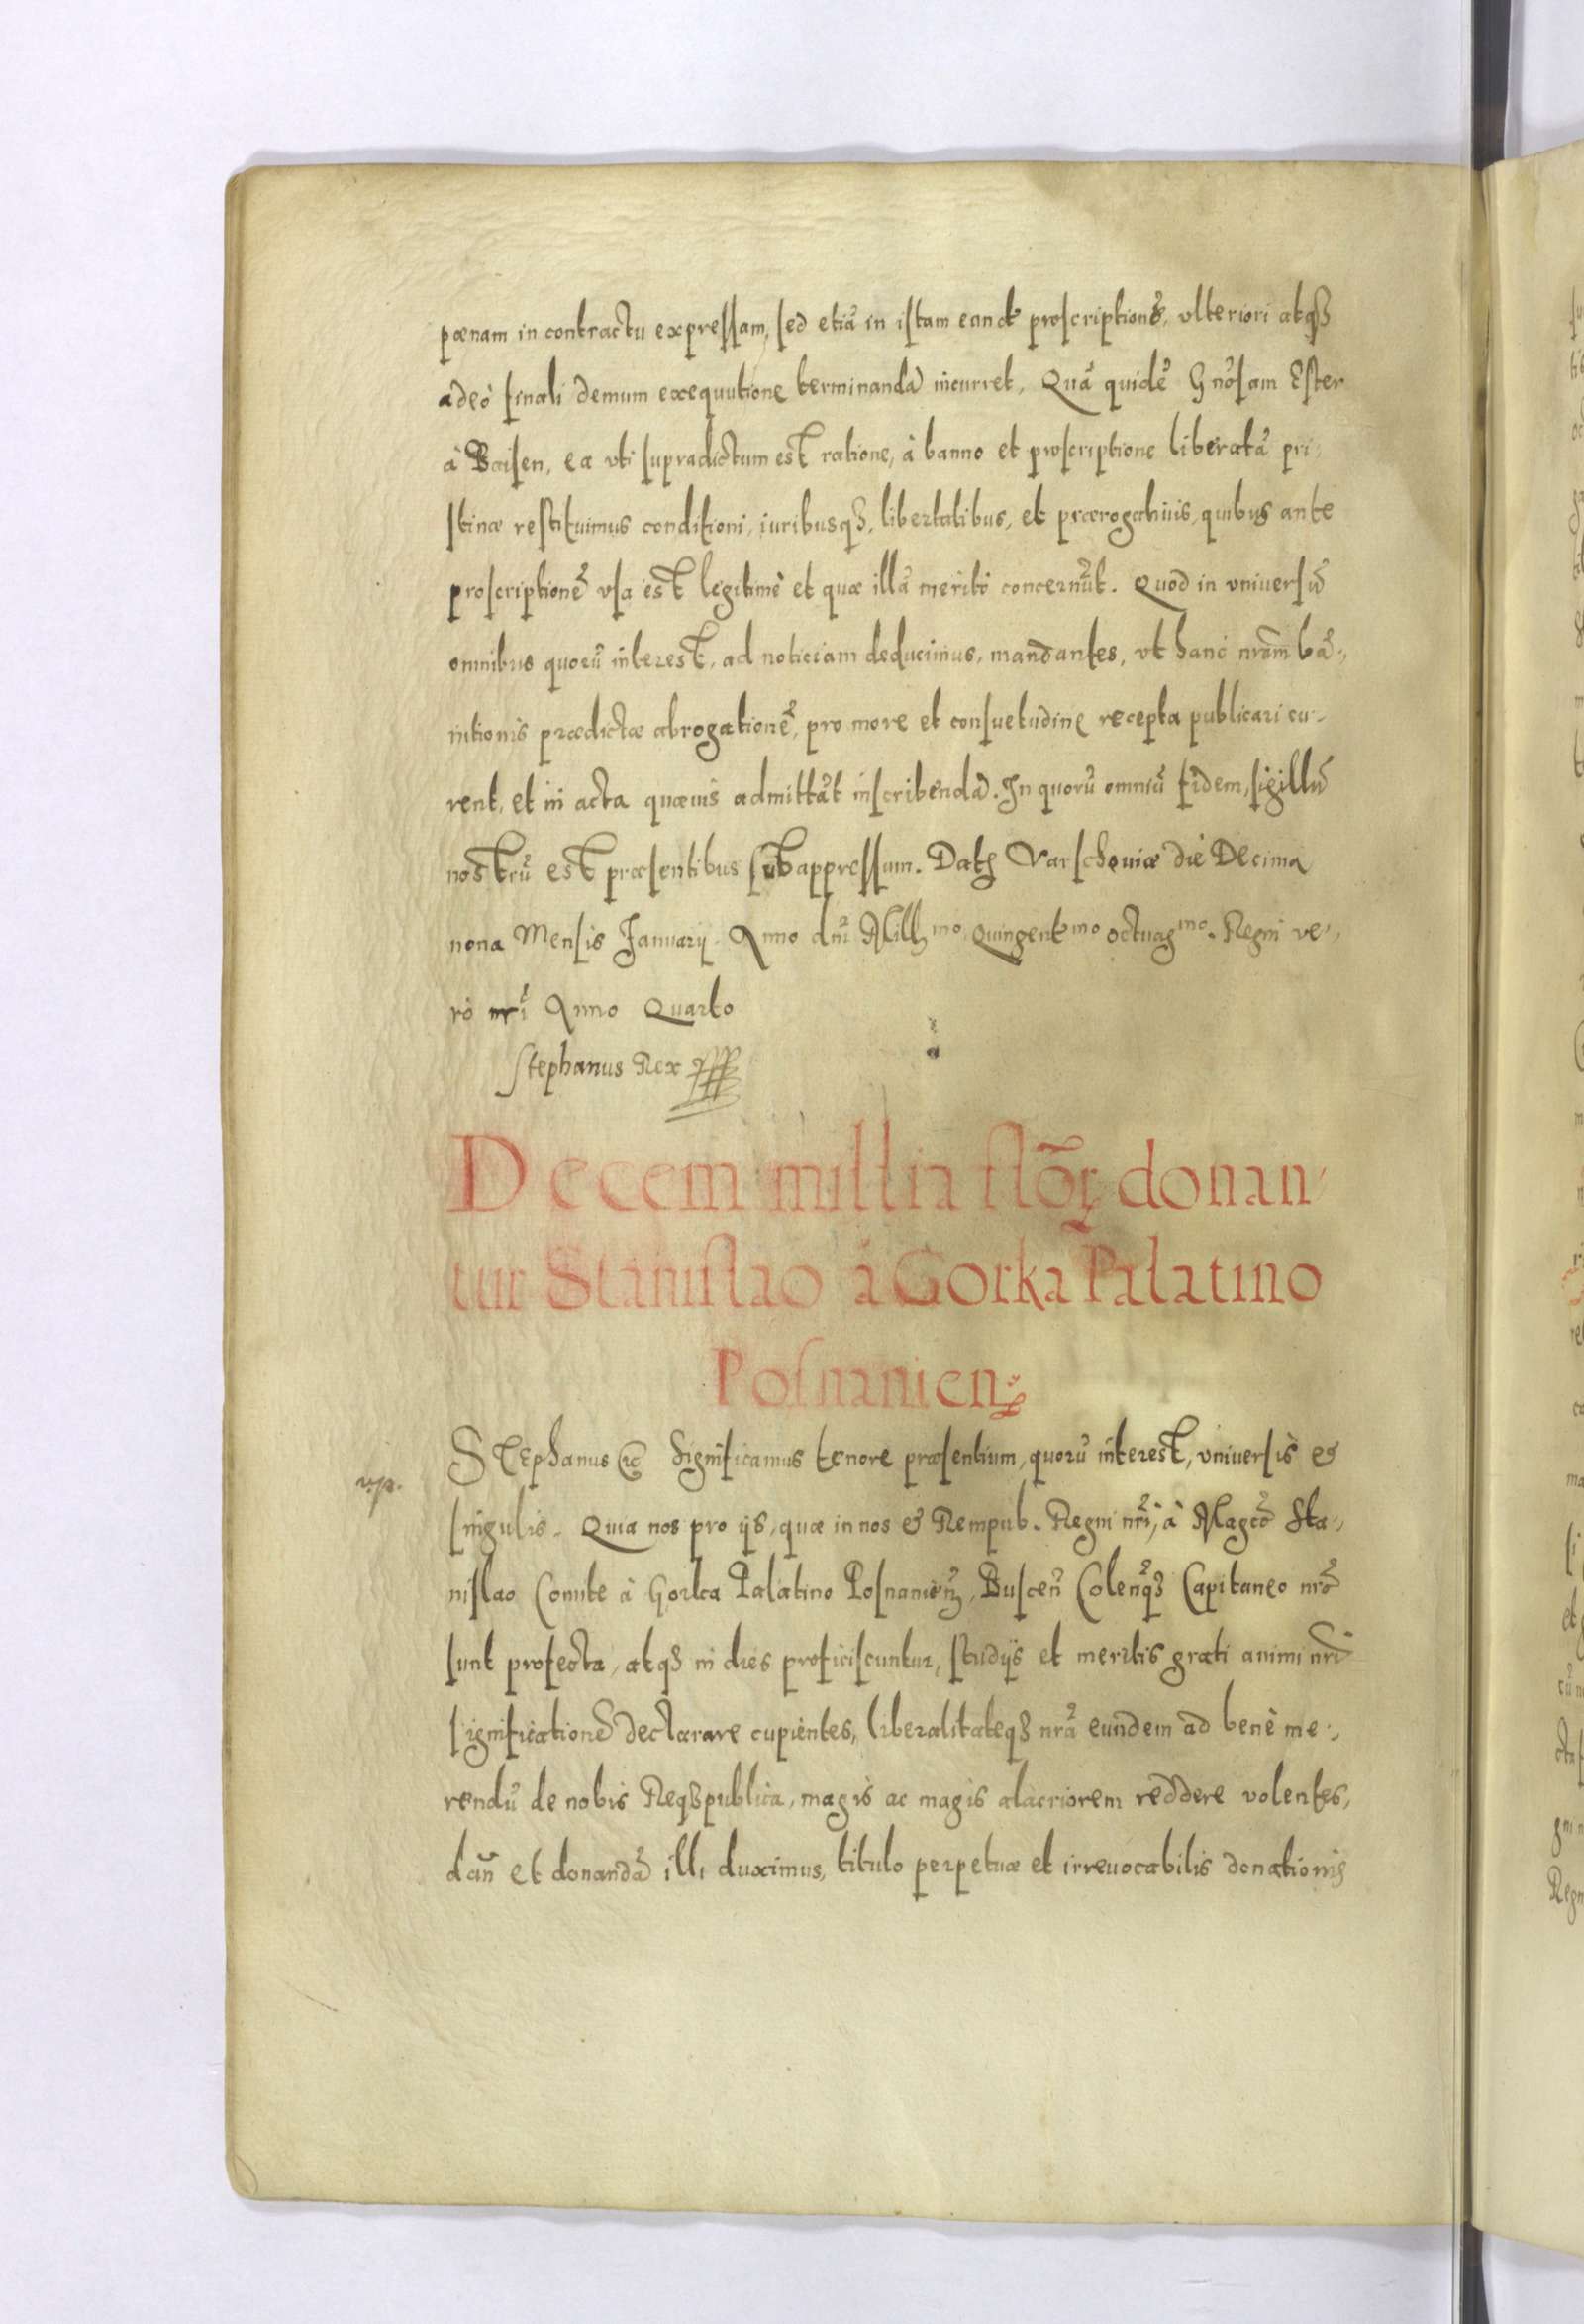 pœnam in contractu expressam, sed etiã in istam eandẽ proscriptionẽ, vlteriori atqȝ
adeò finali demum exequutione terminandã incurret. Quã quidẽ Gñosam Ester
à Baisen, ea vti supradictum est ratione, à banno et proscriptione liberatã pri,
stinæ restituimus conditioni, iuribusqȝ, libertatibus, et prærogatiuis, quibus ante
proscriptionẽ vsa est legitimè et quæ illã meritò concernũt. Quod in vniversũ
omnibus quorũ interest, ad noticiam deducimus, mandantes, vt hanc nr̃am bã,,
nitionis prædictæ abrogationẽ, pro more et consuetudine recepta publicari cu,,
rent, et in acta quæuis admittãt inscribendã. In quorũ omniũ fidem, sigillũ
nostrũ est præsentibus subappressum. Datȝ Varschouiæ die Decima
nona Mensis Januarij. Anno dñi Millȝmo Quingentmo octuagmo. Regni ve,,
rò nr̃i Anno Quarto
Stephanus Rex
Decem millia flõrꝝ donan,
tur Stanislao à Gorka Palatino
Posnanienȝ
Stephanus etc̃ Significamus tenore præsentium, quorũ interest, vniversis et
singulis. Quia nos pro ijs, quæ in nos et Rempub. Regni nr̃i, à Magcõ Sta,,
nislao Comite à Gorka Palatino Posnanieñȝ, Busceñ Coleñqȝ Capitaneo nr̃o
sunt profecta, atqȝ in dies proficiscuntur, studijs et meritis grati animi nr̃i
significationẽ declarare cupientes, liberalitateqȝ nr̃ã eundem ad benè me,,
rendũ de nobis Reqȝpublica, magis ac magis alacriorem reddere volentes,
dañ et donandã illi duximus, titulo perpetuæ et irreuocabilis donationis